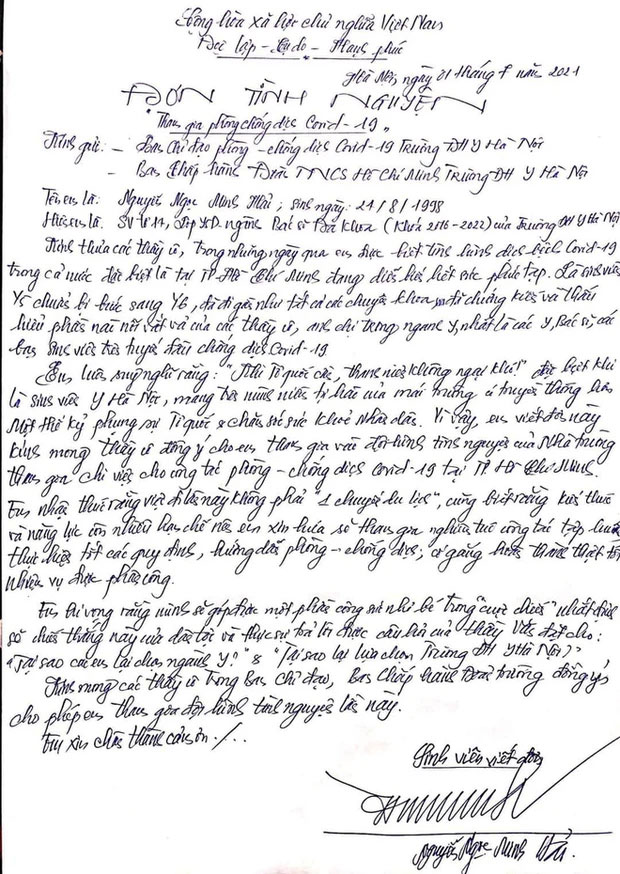 Cộng hòa xã hội chủ nghĩa Việt Nam
Độc lập - Tự do - Hạnh phúc
Hà Nội, ngày 01 tháng 7 năm 2021
ĐƠN TÌNH NGUYỆN
Tham gia phòng chống dịch Covid-19
Kính gửi: - Ban Chỉ đạo phòng - chống dịch Covid-19 Trường ĐH Y Hà Nội
- Ban Chấp hành Đoàn TNCS Hồ Chí Minh Trường ĐH Y Hà Nội
Tên em là: Nguyễn Ngọc Minh Hải; sinh ngày: 24/8/1998
Hiện em là: SV tổ 14, lớp Y5D ngành Bác sĩ Đa khoa (Khóa 2016-2022) của Trường ĐH Y Hà Nội
Kính thưa các thầy cô, trong những ngày qua em được biết tình hình dịch bệnh Covid-19
trong cả nước đặc biệt là tại TP Hồ Chí Minh đang diễn biến hết sức phức tạp. Là sinh viên
Y5 chuẩn bị bước sang Y6, đã đi gần như tất cả các chuyên khoa em đã chứng kiến và thấu
hiểu phần nào nỗi vất vả của các thầy cô, anh chị trong ngành Y, nhất là các Y, Bác sĩ các
bạn sinh viên trên tuyến đầu chống dịch Covid-19
Em luôn suy nghĩ rằng: "Khi Tổ quốc cần, thanh niên không ngại khó!" đặc biệt khi
là sinh viên Y Hà Nội, mang trên mình niềm tự hào của mái trường có truyền thống hơn
một thế kỷ phụng sự Tổ quốc & chăm sóc sức khoẻ Nhân dân. Vì vậy, em viết đơn này
kính mong thầy cô đồng ý cho em tham gia vào đội hình tình nguyện của Nhà trường
tham gia chi viện cho công tác phòng - chống dịch Covid-19 tại TP Hồ Chí Minh.
Em nhận thức rằng việc đi lần này không phải "1 chuyến du lịch", cũng biết rằng kiến thức
và năng lực còn nhiều hạn chế nên em xin hứa sẽ tham gia nghiêm túc công tác tập huấn
thực hiện tốt các quy định, hướng dẫn phòng - chống dịch; cố gắng hoàn thành thật tốt
nhiệm vụ được phân công.
Em hi vọng rằng mình sẽ góp được một phần công sức nhỏ bé trong "cuộc chiến" nhất định
sẽ chiến thắng này của dân tộc và thực sự trả lời được câu hỏi của thầy đặt cho:
"Tại sao các em lại chọn ngành Y?" & "Tại sao lại lựa chọn Trường ĐH Y Hà Nội?"
Kính mong các thầy cô trong Ban Chỉ đạo, Ban Chấp hành Đoàn trường đồng ý,
cho phép em tham gia đội hình tình nguyện lần này.
Em xin chân thành cảm ơn ./.
Sinh viên viết đơn
Nguyễn Ngọc Minh Hải